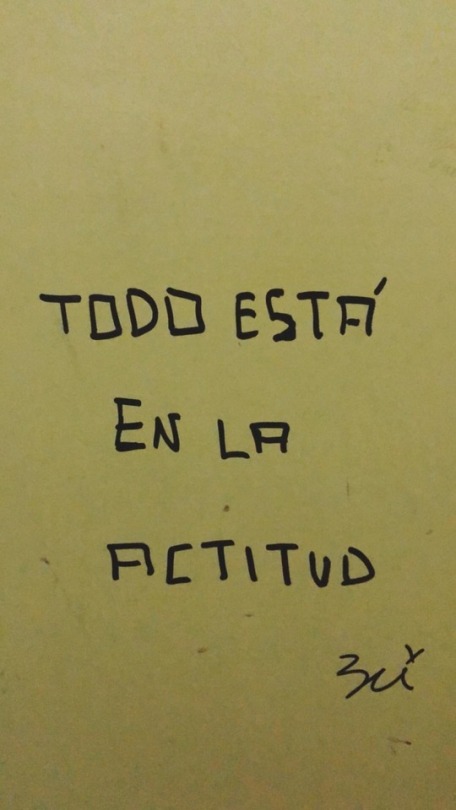 TODO ESTÁ
EN LA
ACTITUD